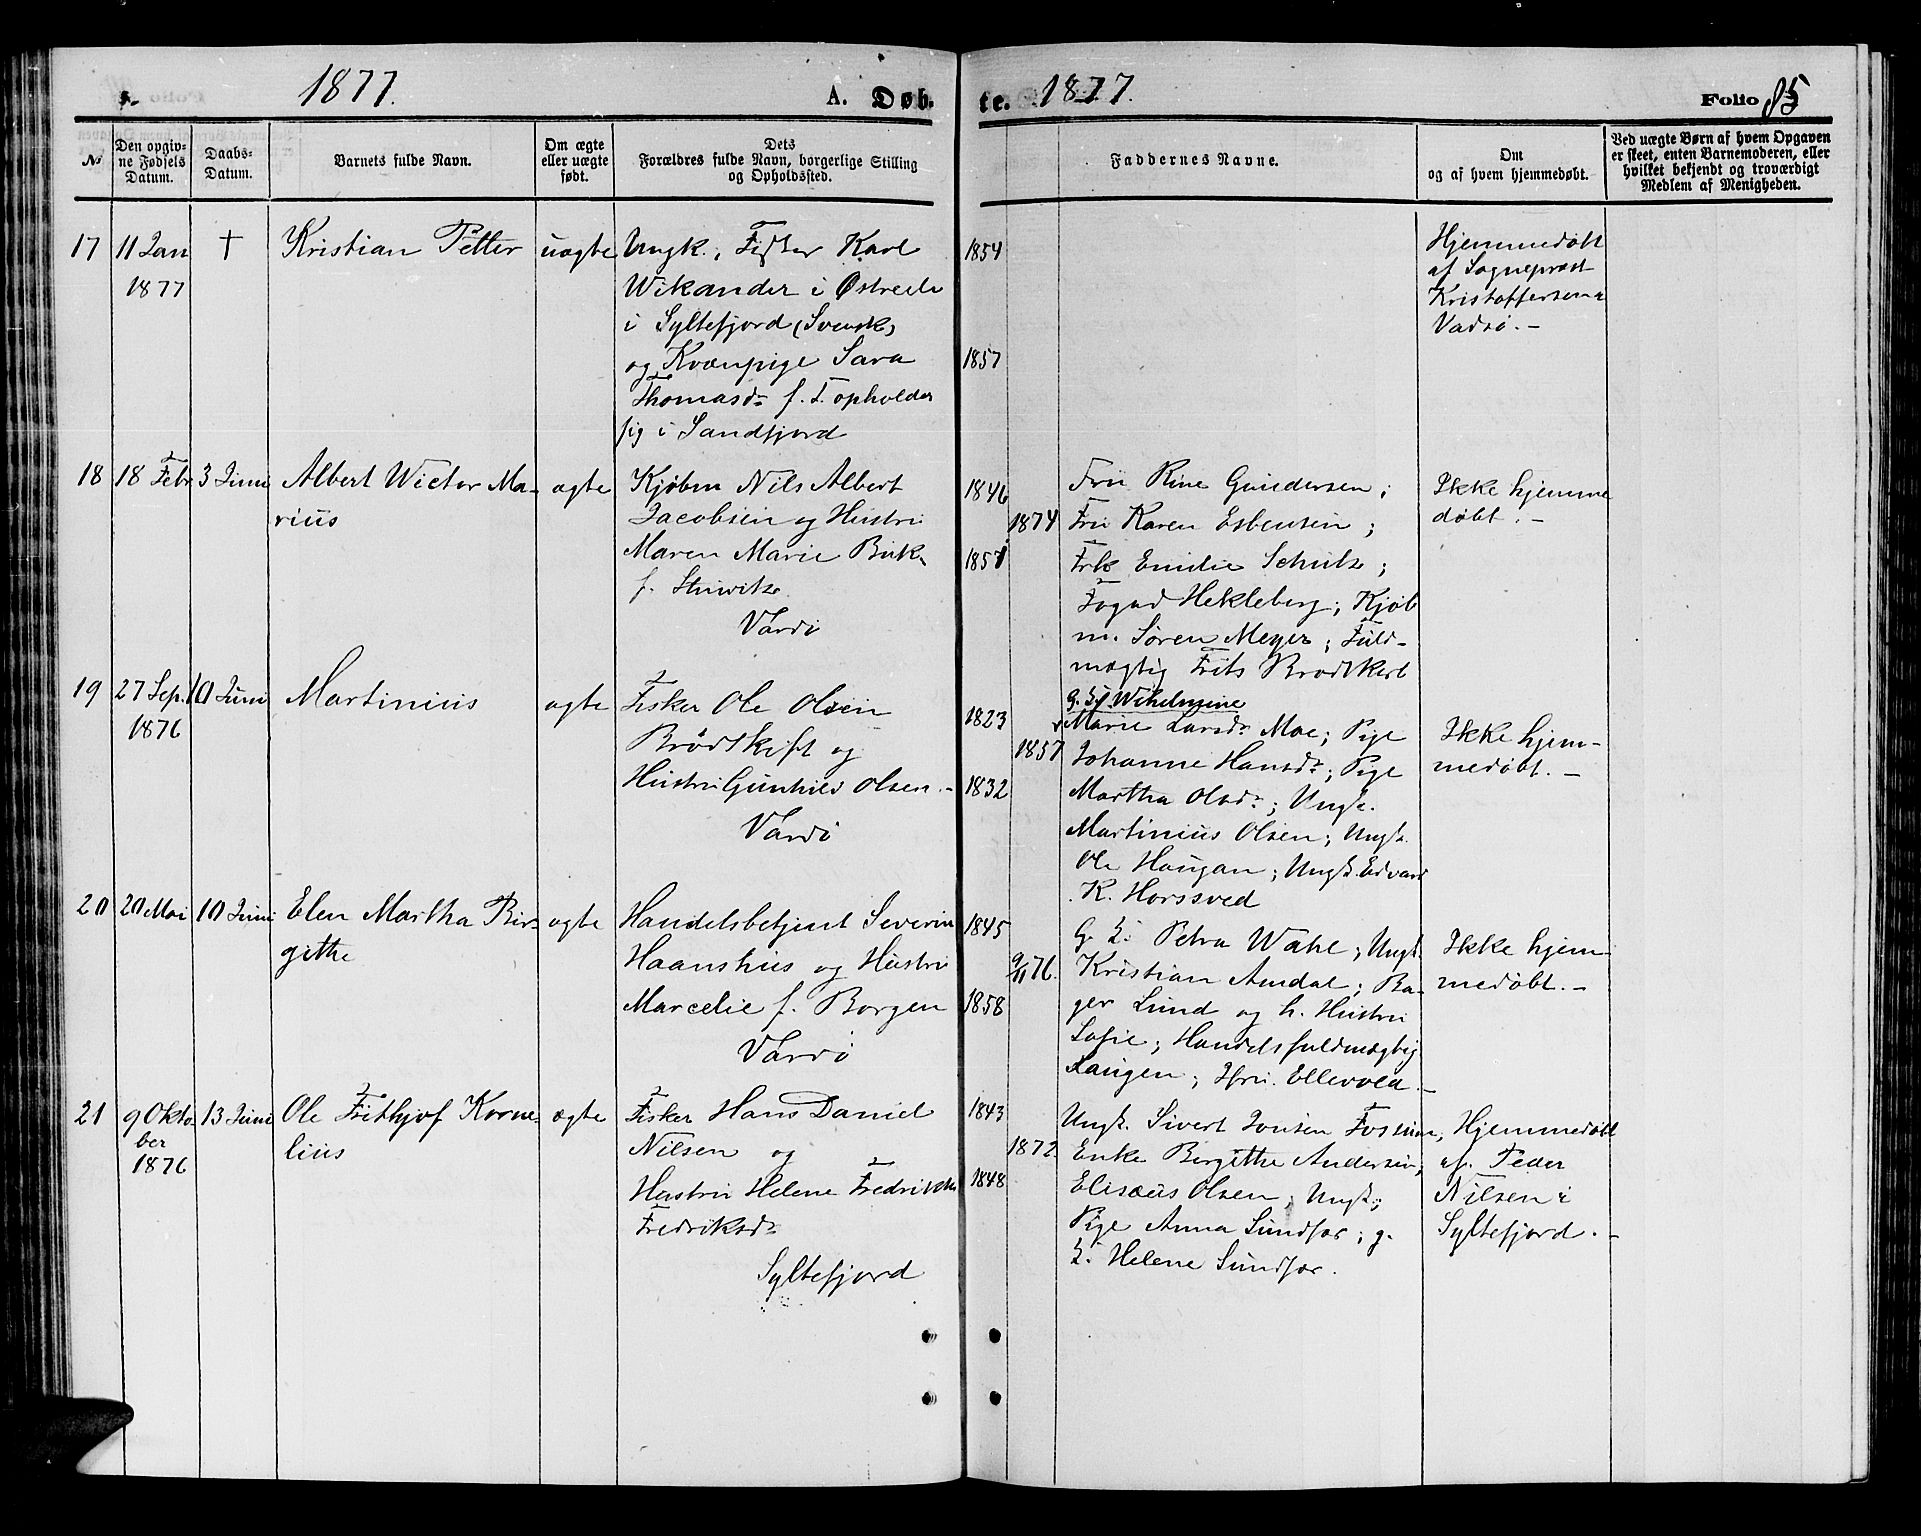 1877.
A. Døb.
te. 1877.
Folio 85
No
Den opgiv-
ne Fødsels
Datum.
Daabs-
Datum.
Barnets fulde Navn.
Om ægte
eller uægte
født.
Dets
Forældres fulde Navn, borgerlige Stilling
og Opholdssted.
Faddernes Navne.
Om
og af hvem hjemmedøbt.
Ved uægte Børn af hvem Opgaven
er skeet, enten Barnemoderen, eller
hvilket bekjendt og troværdigt
Medlem af Menigheden.
17
11 Jan
1877
†
Kristian Petter
uægte
Ungk., Fisker Karl
Wikander i
i Syltefjord (Svensk)
og Kvænpige Sara
Thomasdr f. T. opholder
sig i Sandfjord
1854
1857
Hjemmedøbt
af Sogneprest
Kristoffersen i
Vadsø. -
18
18 Febr
3 Juni
Albert Wictor Ma-
rius
ægte
Kjøbm Nils Albert
Jacobsen og Hustru
Maren Marie
f.
Vardø
1846
1874
1857
Fru Rine Gundersen;
Fru Karen Esbensen;
Frk Emilie Schulz;
Foged Hekleberg; Kjøb
m. Søren Meyer; Fuld-
mægtig Frits Brodtkorb
Ikke hjemme
døbt. -
19
27 Sep.
1876
10 Juni
Martinius
ægte
Fisker Ole Olsen
Brødskift og
Hustru Gunhild Olsen. -
Vardø
1823
1857
1832
G. Wilhelmine
Marie Larsdr Moe; Pige
Johanne Hansdr; Pige
Martha Olsdr; Ungk.
Martinius Olsen; Ungk.
Ole Haugan; Ungk. Edvard
K. Horssved
Ikke hjem-
medøbt. -
20
20 Mai
10 Juni
Elen Martha Bir-
githe
ægte
Handelsbetjent Severin
Haanshus og Hustru
Marcelie f. Borgen
Vardø
1845
9/11 76.
1858
G. K. Petra Wahl; Ungk.
Kristian Amdal; Ba-
ger Lund og h. Hustru
Sofie; Handelsfuldmægtig
Laugen; Ellevold. -
Ikke hjem-
medøbt. -
21
9 Okto-
ber
1876
13 Juni
Ole Frithjof Korne-
lius
ægte
Fisker Hans Daniel
Nilsen og
Hustru Helene Fredrikke
Fredriksdr
Syltefjord
1843
1872
1848
Ungk. Sivert Jonsen Fossum,
Enke Bergithe Andersen,
Elisæus Olsen, Ungk.;
Pige Anna Sundfør; g.
K. Helene Sundfør.
Hjemmedøbt
af Peder
Nilsen i
Syltefjord. -